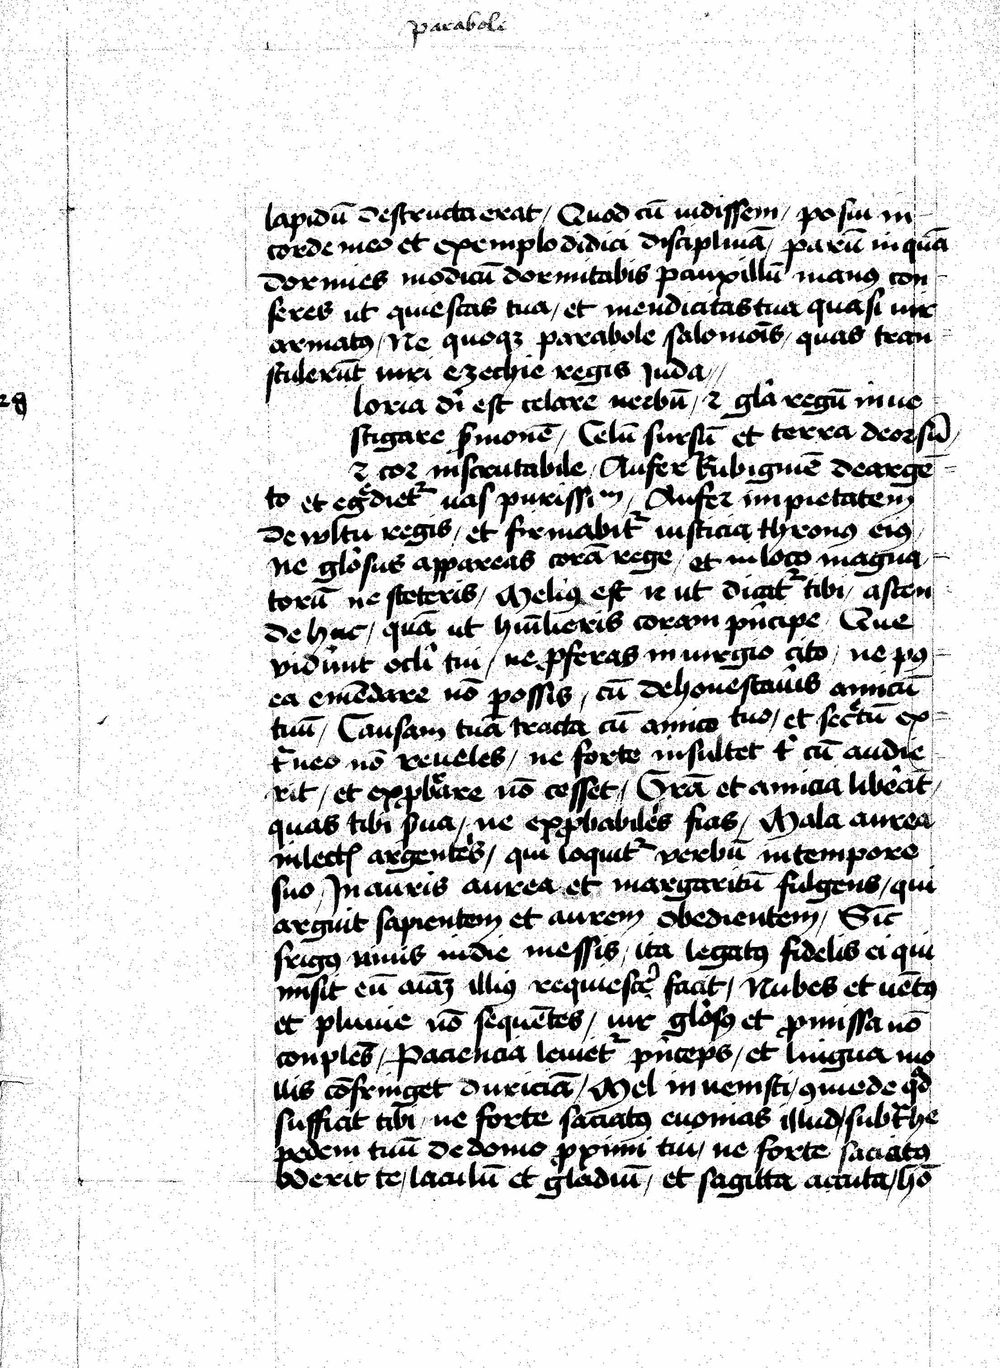 parabole
lapidū destructa erat / Quod cū vidissem / posui in
corde meo et exemplo didici disciplinā / parū inquā
dormies modicū dormitabis pauxillū manꝰ con
seres ut quiescas tua / et mendicitas tua quasi vir
armatꝰ / Ne quoqꝫ parabole salomōis / quas tran
stulerūt viri ezechie regis Juda //
loria dī est celare verbū / ⁊ gl̄a regū inve
stigare s̄monē / Celū sursū et terra deorsū /
⁊ cor inscrutabile / Aufer Rubiginē de arge
to et egᵃdietᷣ vas purissim / Aufer impietatem
de vultu regis / et firmabitᷣ iusticia thronꝰ eiꝰ /
ne gl̄osus appareas corā rege / et in loco magna
torū ne steteris / Meliꝰ est n̄ ut dicatᷣ tibi / ascen
de huc / quā ut humīlieris coram pͥncipe Que
viderūnt oclī tui / ne ꝓferas in iurgio cito / ne pꝰ
ea emēdare nō possis / cū dehonestaveris amicū
tuū / Causam tuā tracta cū amico tuo / et secᵉtū ex
tᵃneo nō reveles / ne forte insultet t̄ cū audie
rit / et exꝓbᵃre nō cesset / Grā et amicia liberāt /
quas tibi s̄va / ne exꝓbabiles fias / Mala aurea
in lectꝭ argenteis / qui loquitᷣ verbū in tempore
suo / Inauris aurea et margaritū fulgens / qui
arguit sapientem et aurem obedientem / Sic
frigꝰ nivis in die messis / ita legatꝰ fidelis ei qui
misit eū aīaꝫ illiꝰ requiescere facit / Nubes et vētꝰ
et pluvie nō sequētes / vir gl̄osꝰ et ꝓmissa nō
conplēs / Paciencia lenietᷣ pͥnceps / et lingua mo
llis cōfringet duriciā / Mel invenisti / ꝯmede qͩ
sufficit tibi / ne forte saciatꝰ evomas illud / subtᵃhe
pedem tuū de domo ꝓximi tui / ne forte saciatꝰ
oderit te / Iaculū et gladiū / et sagitta accuta / hō